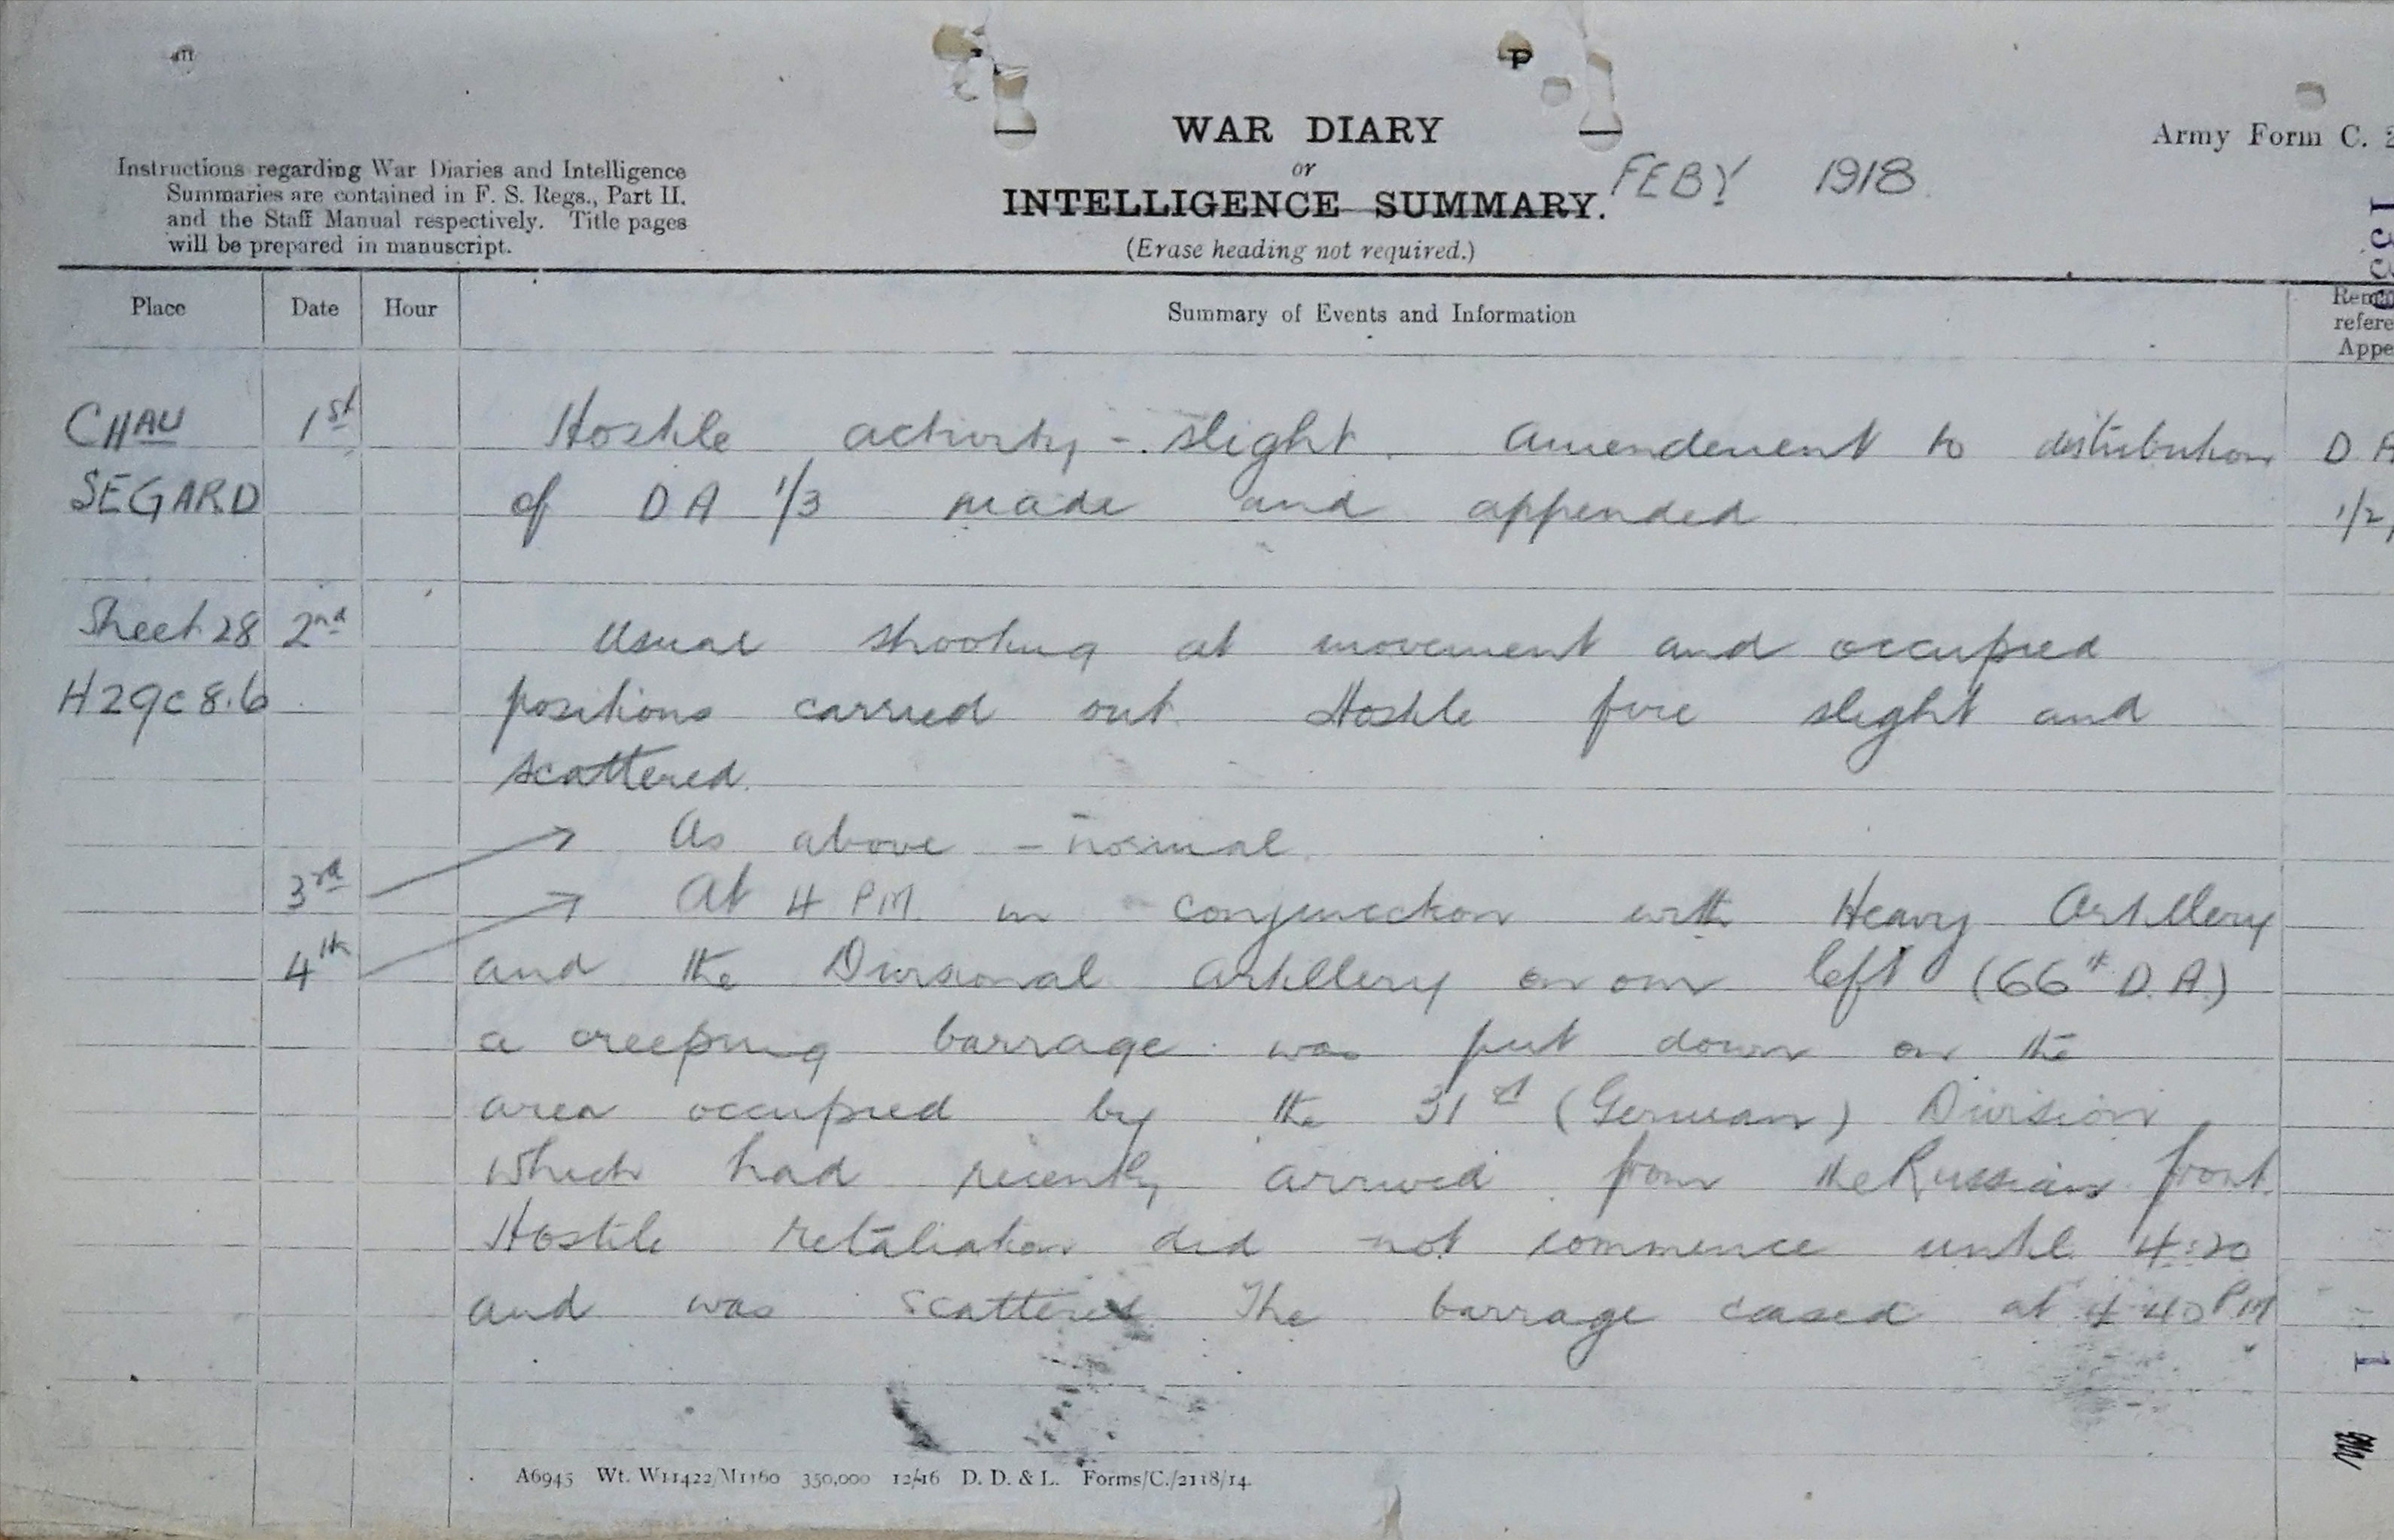 WAR DIARY
or
INTELLIGENCE SUMMARY.
(Erase heading not required.)
FEBY 1918
Army Form C. 2
Instructions regarding War Diaries and Intelligence
Summaries are contained in F. S. Regs., Part II.
and the Staff Manual respectively. Title pages
will be prepared in manuscript.
Place Date Hour Summary of Events and Information
refere
Appe
CHAU 1st Hostile activity - slight. Amendement to distribution D A
SEGARD of DA 1/3 made and appended 1/2,
Sheet 28 2nd Usual shooting at movement and occupied
H29c8.6 positions carried out. Hostile fire slight and
scattered.
3rd As above - normal.
4th At 4 PM in conjunction with Heavy Artillery
and the Divisional Artillery on our left (66th D.A.)
a creeping barrage was put down on the
area occupied by the 31st (German) Division
which had recently arrived from the Russian front.
Hostile retaliation did not commence until 4.20
and was scattered The barrage ceased at 4.40 PM
A6945 Wt. W11422/M1160 350,000 12/16 D. D. & L. Forms/C./2118/14.